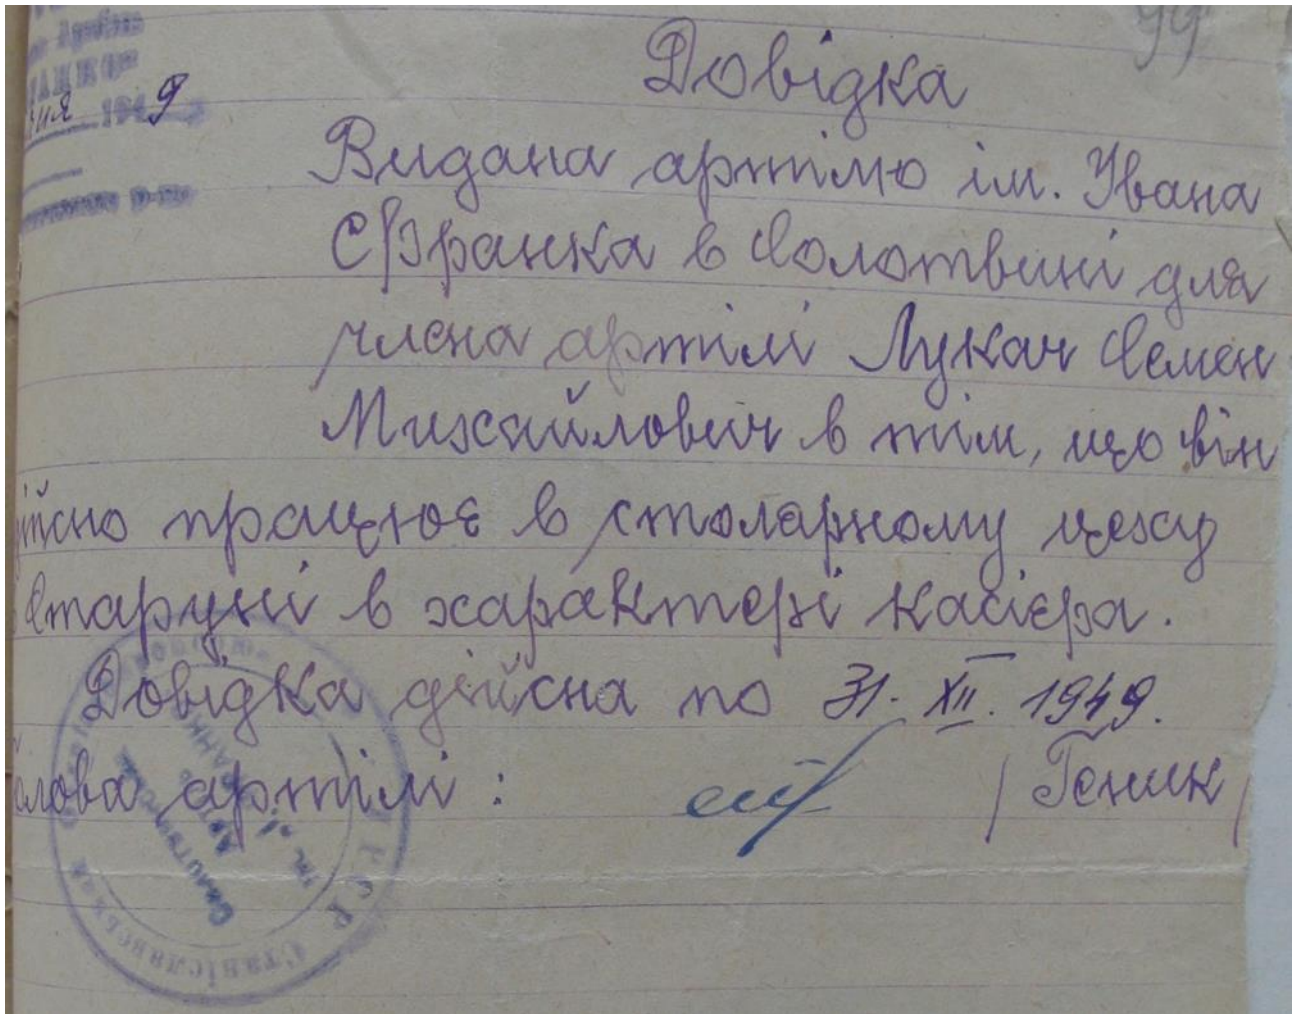 99
Довідка
194 9
Видана артілю ім. Івана
Франка в Солотвині для
члена артілі Лукач Семен
Михайлович в тім, що він
дійсно працює в столярному цеху
Старуні в характері касієра.
Довідка дійсна по 31. XII. 1949.
Голова артілі : / Геник /
УРСР Станіславська